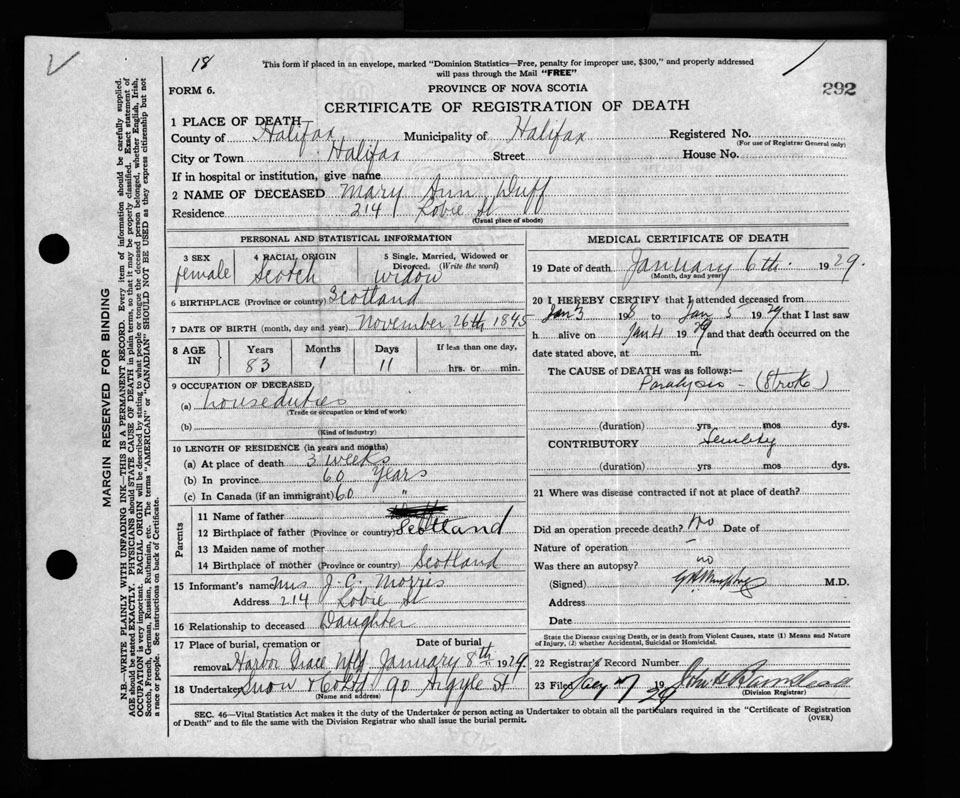 18
This form if placed in an envelope, marked "Dominion Statistics—Free, penalty for improper use, $300," and properly addressed
will pass through the Mail "FREE"
FORM 6.
PROVINCE OF NOVA SCOTIA
292
CERTIFICATE OF REGISTRATION OF DEATH
1 PLACE OF DEATH
County of Halifax Municipality of Halifax Registered No.
(For use of Registrar General only)
City or Town Halifax Street House No.
If in hospital or institution, give name
2 NAME OF DECEASED Mary Ann Duff
Residence 214 Robie St
(Usual place of abode)
PERSONAL AND STATISTICAL INFORMATION
3 SEX female
4 RACIAL ORIGIN Scotch
5 Single, Married, Widowed or Divorced. (Write the word) widow
6 BIRTHPLACE (Province or country) Scotland
7 DATE OF BIRTH (month, day and year) November 26th 1845
8 AGE IN Years Months Days If less than one day,
83 1 11 hrs. or min.
9 OCCUPATION OF DECEASED
(a) house duties
(Trade or occupation or kind of work)
(b)
(Kind of industry)
10 LENGTH OF RESIDENCE (in years and months)
(a) At place of death 3 weeks
(b) In province 60 years
(c) In Canada (if an immigrant) 60 "
Parents
11 Name of father
12 Birthplace of father (Province or country) Scotland
13 Maiden name of mother
14 Birthplace of mother (Province or country) Scotland
15 Informant's name Mrs J. C. Morris
Address 214 Robie St
16 Relationship to deceased Daughter
17 Place of burial, cremation or Date of burial
removal Harbor Grace Nfld January 8th 1929
18 Undertaker Snow & Co Ltd 90 Argyle St
(Name and address)
MEDICAL CERTIFICATE OF DEATH
19 Date of death January 6th 1929.
(Month, day and year)
20 I HEREBY CERTIFY that I attended deceased from
Jan 3 198 to Jan 5 1929 that I last saw
h alive on Jan 4 1929 and that death occurred on
date stated above, at m.
The CAUSE of DEATH was as follows:—
Paralysis - (Stroke)
(duration) yrs mos dys.
CONTRIBUTORY Senility
(duration) yrs mos dys.
21 Where was disease contracted if not at place of death?
Did an operation precede death? no Date of
Nature of operation -
Was there an autopsy? no
(Signed) M.D.
Address
Date
State the Disease causing Death, or in death from Violent Causes, state (1) Means and Nature
of Injury, and (2) whether Accidental, Suicidal or Homicidal.
22 Registrar's Record Number
23 Filed 7 1929 John
(Division Registrar)
SEC. 46—Vital Statistics Act makes it the duty of the Undertaker or person acting as Undertaker to obtain all the particulars required in the "Certificate of Registration
of Death" and to file the same with the Division Registrar who shall issue the burial permit.
(OVER)
MARGIN RESERVED FOR BINDING
N.B.—WRITE PLAINLY WITH UNFADING INK—THIS IS A PERMANENT RECORD. Every item of information should be carefully supplied.
AGE should be stated EXACTLY. PHYSICIANS should STATE CAUSE OF DEATH in plain terms, so that it may be properly classified. Exact statement of
OCCUPATION is very important. RACIAL ORIGIN will be described by stating to what people or tongue the deceased person belonged, whether English, Irish,
Scotch, French, German, Russian, Ruthenian, etc. The terms "AMERICAN" or "CANADIAN" SHOULD NOT BE USED as they express citizenship but not
a race or people. See instructions on back of Certificate.